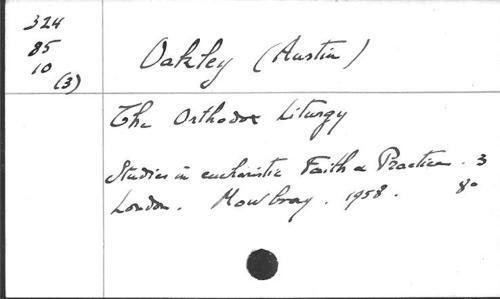 324
85
10
(3)
Oakley (Austin)
The Orthodox Liturgy
Studies in eucharistic Faith & Practice. 3
London. Mowbray. 1958. 8o